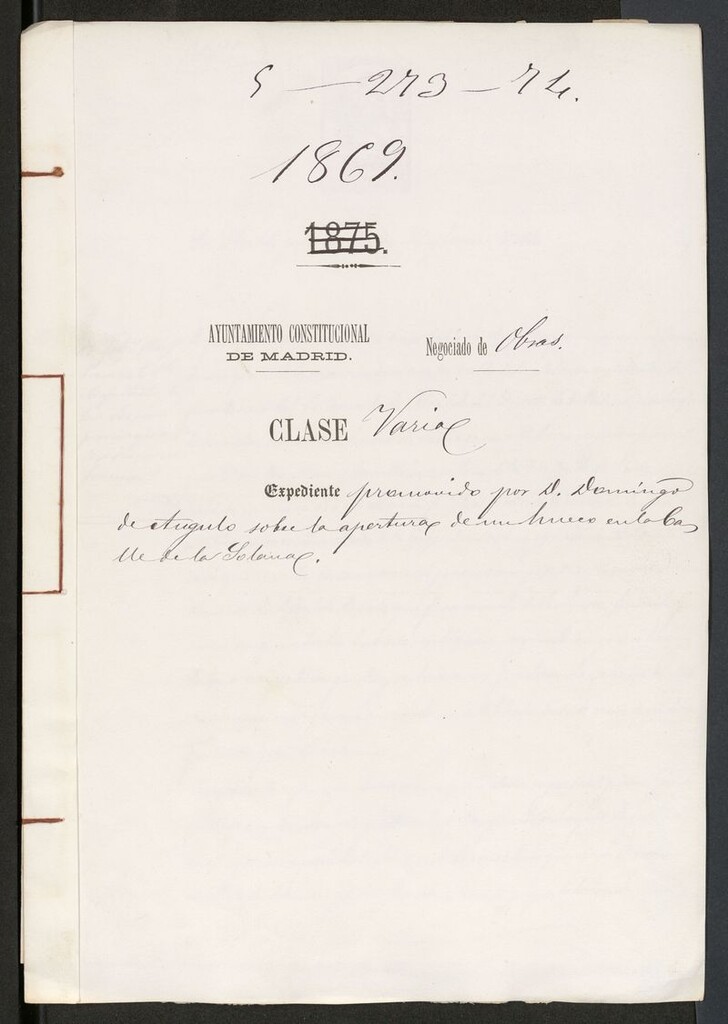 5 — 273 — 74.
1869.
1875.
AYUNTAMIENTO CONSTITUCIONAL
DE MADRID.
Negociado de Obras.
CLASE Varia
Expediente promovido por D. Domingo
de Angulo sobre la apertura de un hueco en la Ca
lle de la Solana.